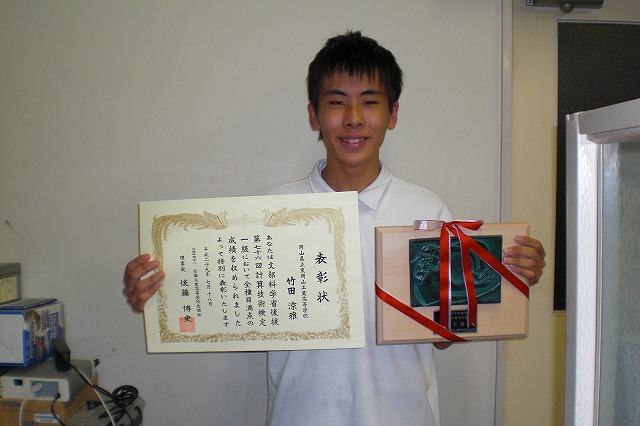 表彰状
岡山県立東岡山工業高等学校
竹田 涼雅
あなたは文部科学省後援
第七十六回計算技術検定
一級において全種目満点の
成績を収められました
よって特別に表彰いたします
平成二十九年 七月 十八日
理事長 後藤 博史